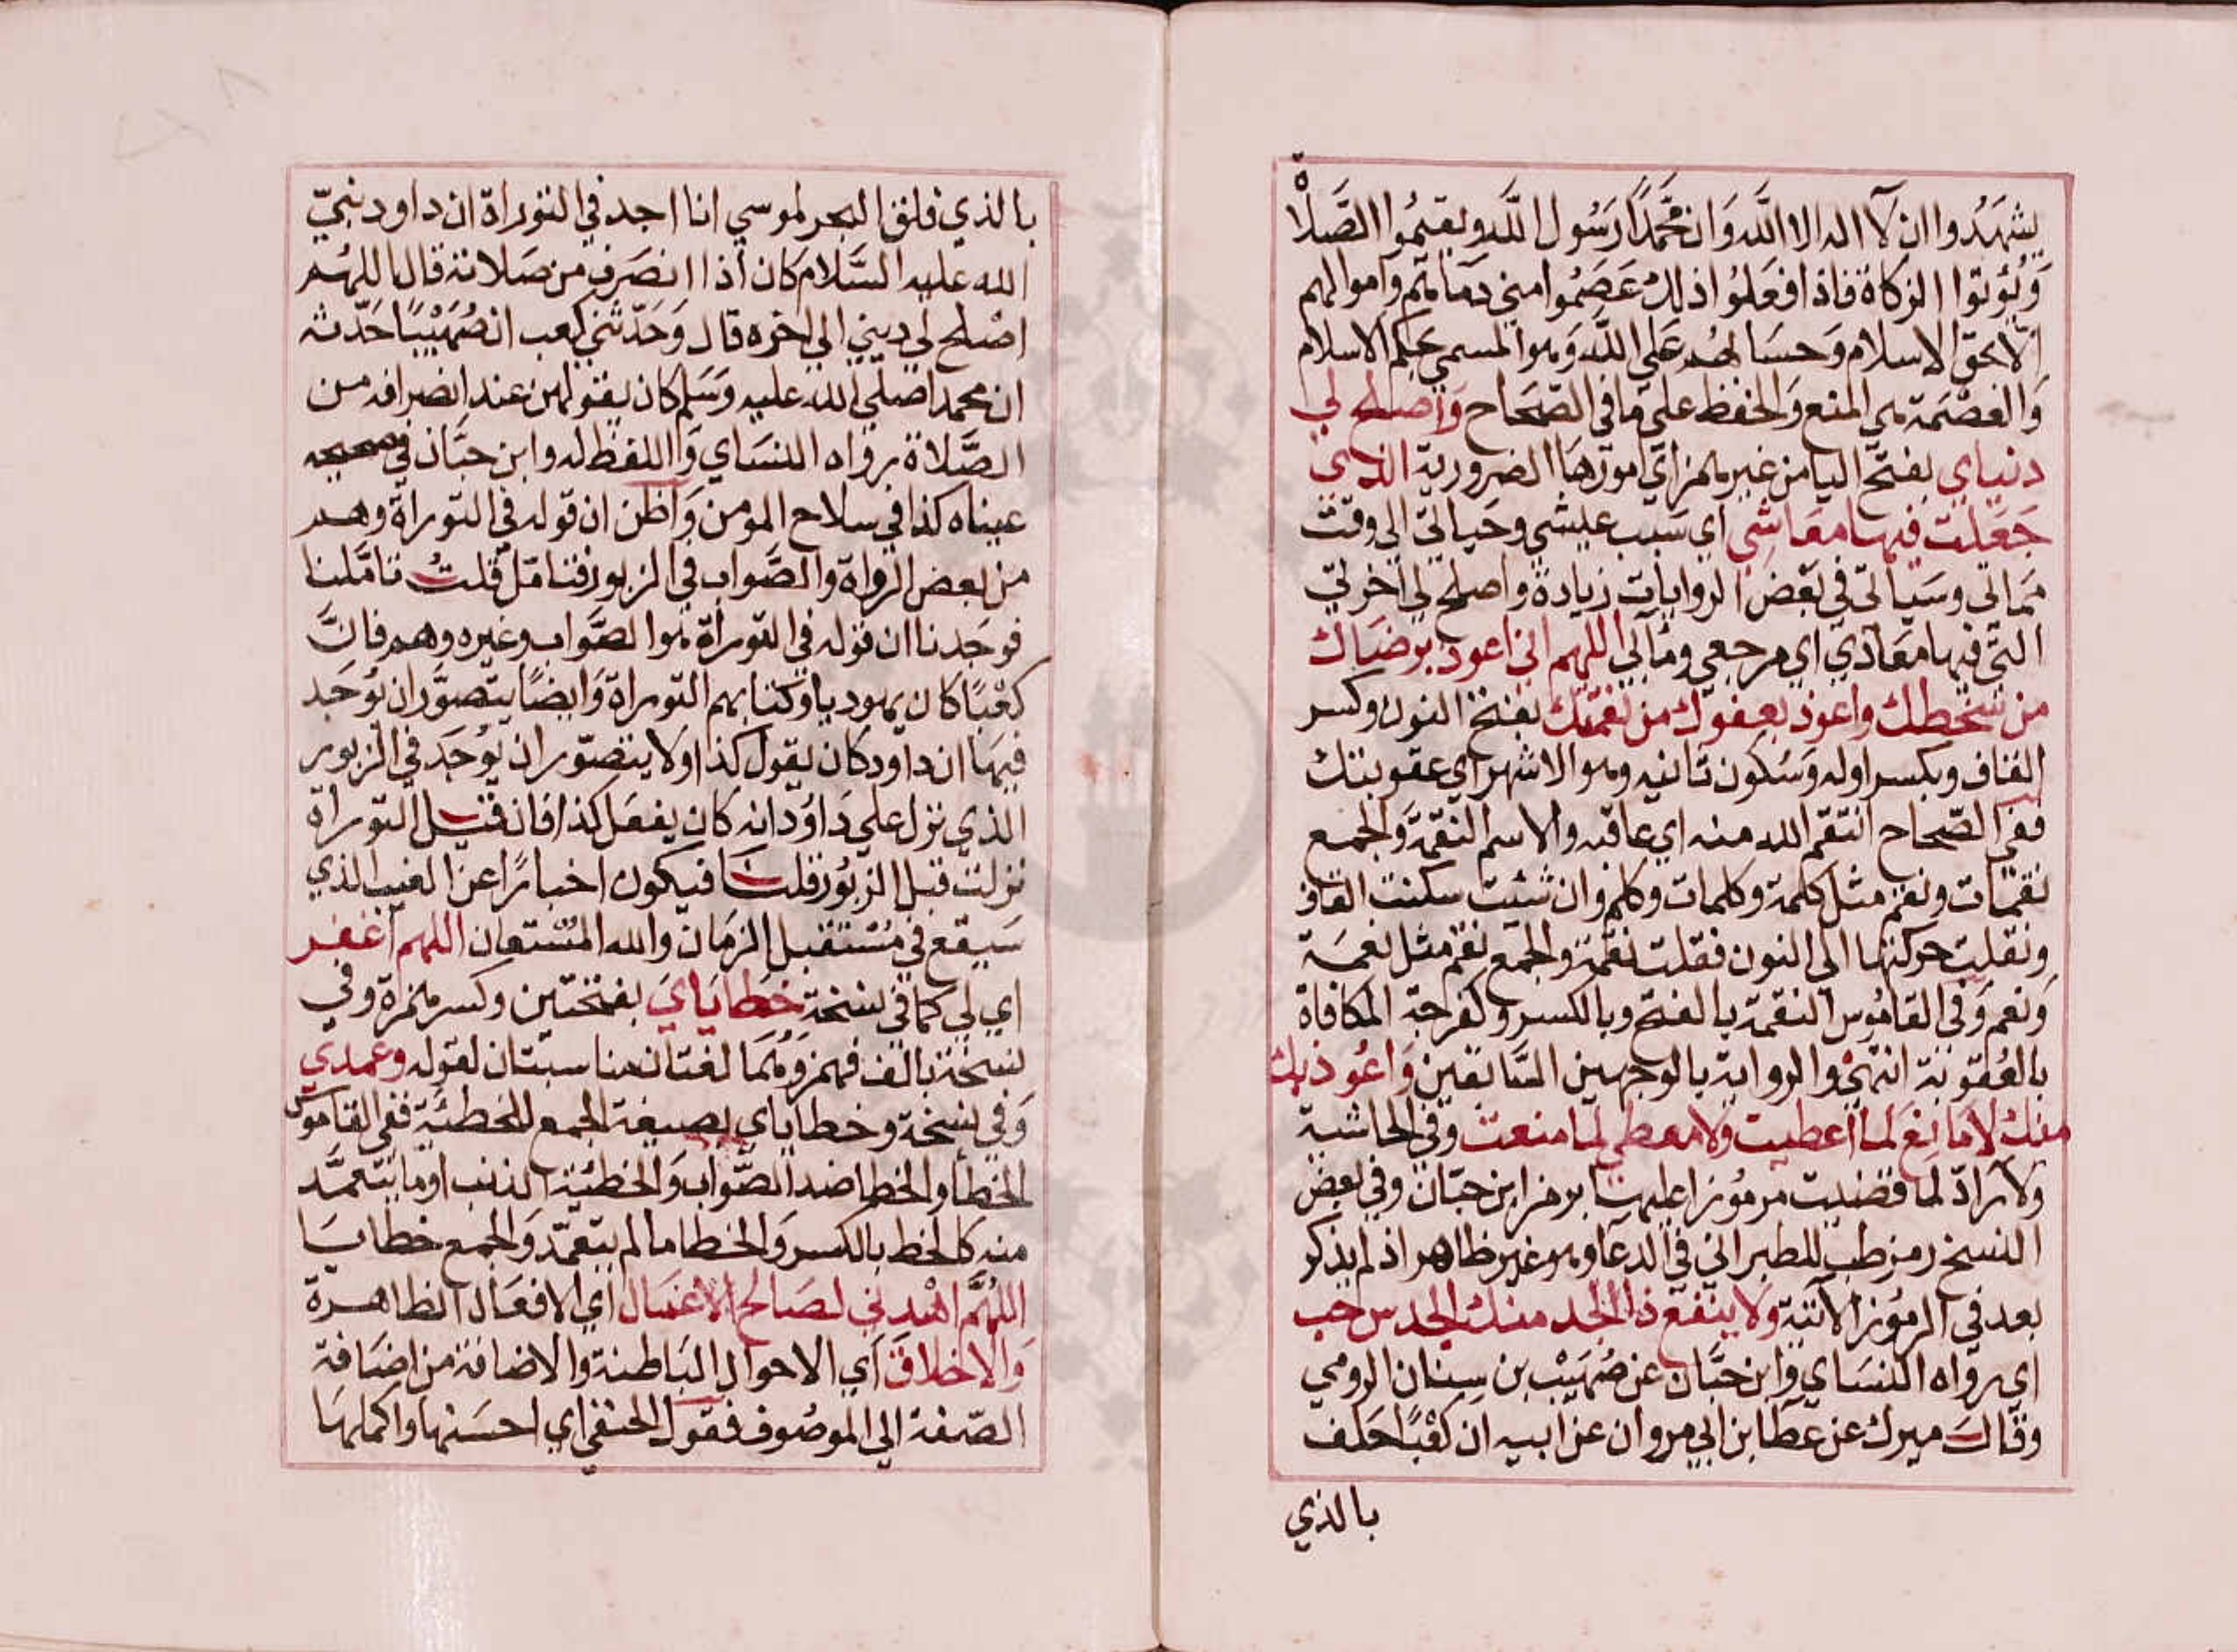 يشهدوا ان لآ اله الا الله وان محمدًا رسول الله ويقيموا الصلاة
ويؤتوا الزكاة فاذا فعلوا ذلك عصموا مني دمائهم واموالهم
الا بحق الاسلام وحسابهم على الله وهو المسمى بحكم الاسلام
والعصمة هي المنع والحفظ على ما في الصحاح واصلح لي
دنياي بفتح اليا من غير همز اي امورها الضرورية الذي
جعلت فيها معاشي اي سبب عيشي وحياتي الى وقت
مماتي وسياتي في بعض الروايات زيادة واصلح لي اخرتي
التي فيها معادي اي مرجعي ومآلي اللهم اني اعوذ برضاك
من سخطك واعوذ بعفوك من نقمتك بفتح النون وكسر
القاف وبكسر اوله وسكون ثانيه وهو الاشهر اي عقوبتك
ففي الصحاح انتقم الله منه اي عاقبه والاسم النقمة والجمع
نقمات ونقم مثل كلمة وكلمات وكلم وان شئت سكنت القاف
ونقلت حركتها الى النون فقلت نقمة والجمع نقم مثل نعمة
ونعم وفي القاموس النقمة بالفتح وبالكسر وكفرحة المكافاة
بالعقوبة انتهى والرواية بالوجهين السابقين واعوذ بك
منك لا مانع لما اعطيت ولا معطي لما منعت وفي الحاشية
ولا راد لما قضيت مرموزا عليها برمز ابن حبان وفي بعض
النسخ رمز طب للطبراني في الدعا وهو غير ظاهر اذ لم يذكر
بعد في الرموز الآتية ولا ينفع ذا الجد منك الجد س حب
اي رواه النساي وابن حبان عن صهيب بن سنان الرومي
وقال ميرك عن عطا بن ابي مروان عن ابيه ان كعبًا حلف
بالذي
بالذي فلق البحر لموسي انا اجد في التوراة ان داود نبيّ
الله عليه السلام كان اذا انصرف من صلاته قال اللهم
اصلح لي ديني الى اخره قال وحدثني كعب ان صهيبًا حدثه
ان محمدا صلى الله عليه وسلم كان يقولهن عند انصرافه من
الصلاة رواه النساي واللفظ له وابن حبان في صحيحه
عيناه كذا في سلاح المومن واظن ان قوله في التوراة وهم
من بعض الرواة والصواب في الزبور فتامل قلت تاملنا
فوجدنا ان قوله في التوراة هو الصواب وغيره وهم فان
كعبًا كان يهوديا وكتابهم التوراة وايضًا يتصور ان يوجد
فيها ان داود كان يقول كذا ولا يتصور ان يوجد في الزبور
الذي نزل على داود انه كان يفعل كذا فان قيل التوراة
نزلت قبل الزبور قلنا فيكون اخبارًا عن الغيب الذي
سيقع في مستقبل الزمان والله المستعان اللهم اغفر
اي لي كما في نسخة خطاياي بفتحتين وكسر همزة وفي
نسخة بالف فهمز وهما لغتان مناسبتان لقوله وعمدي
وفي نسخة وخطاياي بصيغة الجمع للخطيئة ففي القاموس
الخطأ والخطا ضد الصواب والخطيئة الذنب او ما يتعمد
منه كالخط بالكسر والخطا ما لم يتعمد والجمع خطايا
اللهم اهدني لصالح الاعمال اي الافعال الظاهرة
والاخلاق اي الاحوال الباطنة والاضافة من اضافة
الصفة الى الموصوف فقول الحنفي اي احسنها واكملها